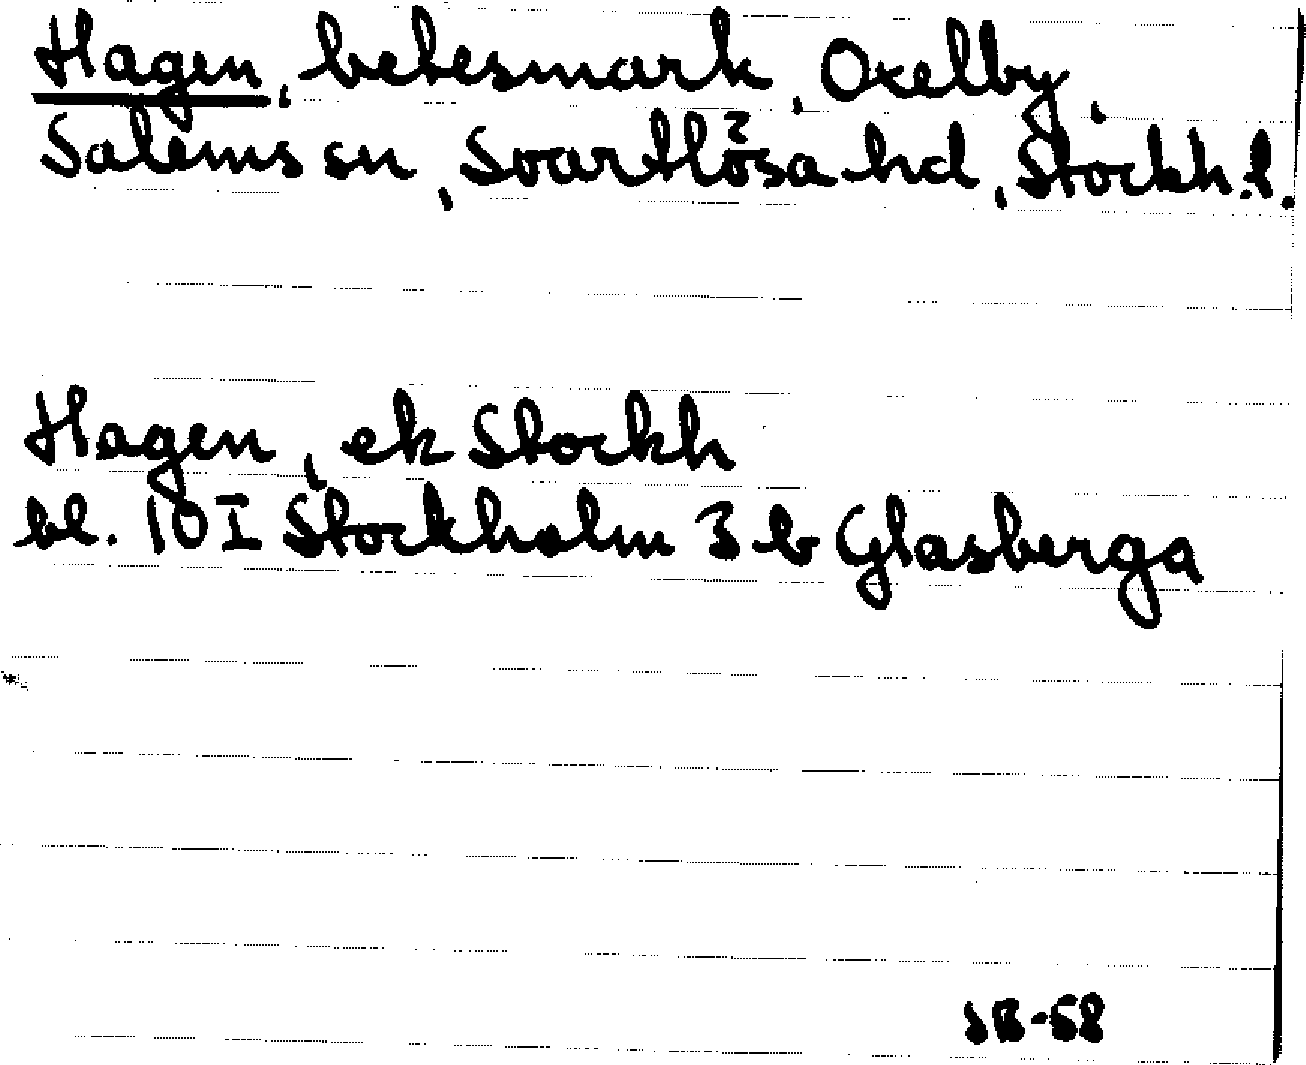 Hagen, betesmark, Oxelby,
Salems sn, Svartlösa hd, Stockh.l.
Hagen, ek Stockh
bl. 10 I Stockholm 3 b Glasberga
SB-68